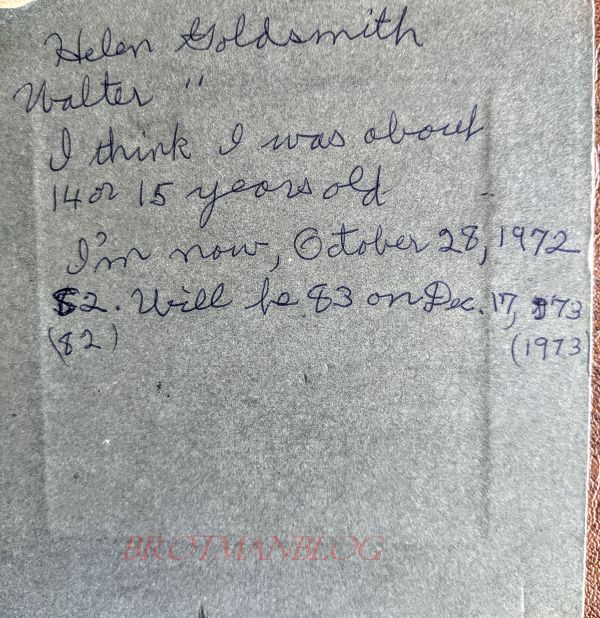 Helen Goldsmith
Walter "
I think I was about
14 or 15 years old
I'm now, October 28, 1972
82. Will be 83 on Dec. 17, 1973
(82) (1973)
BROTMANBLOG